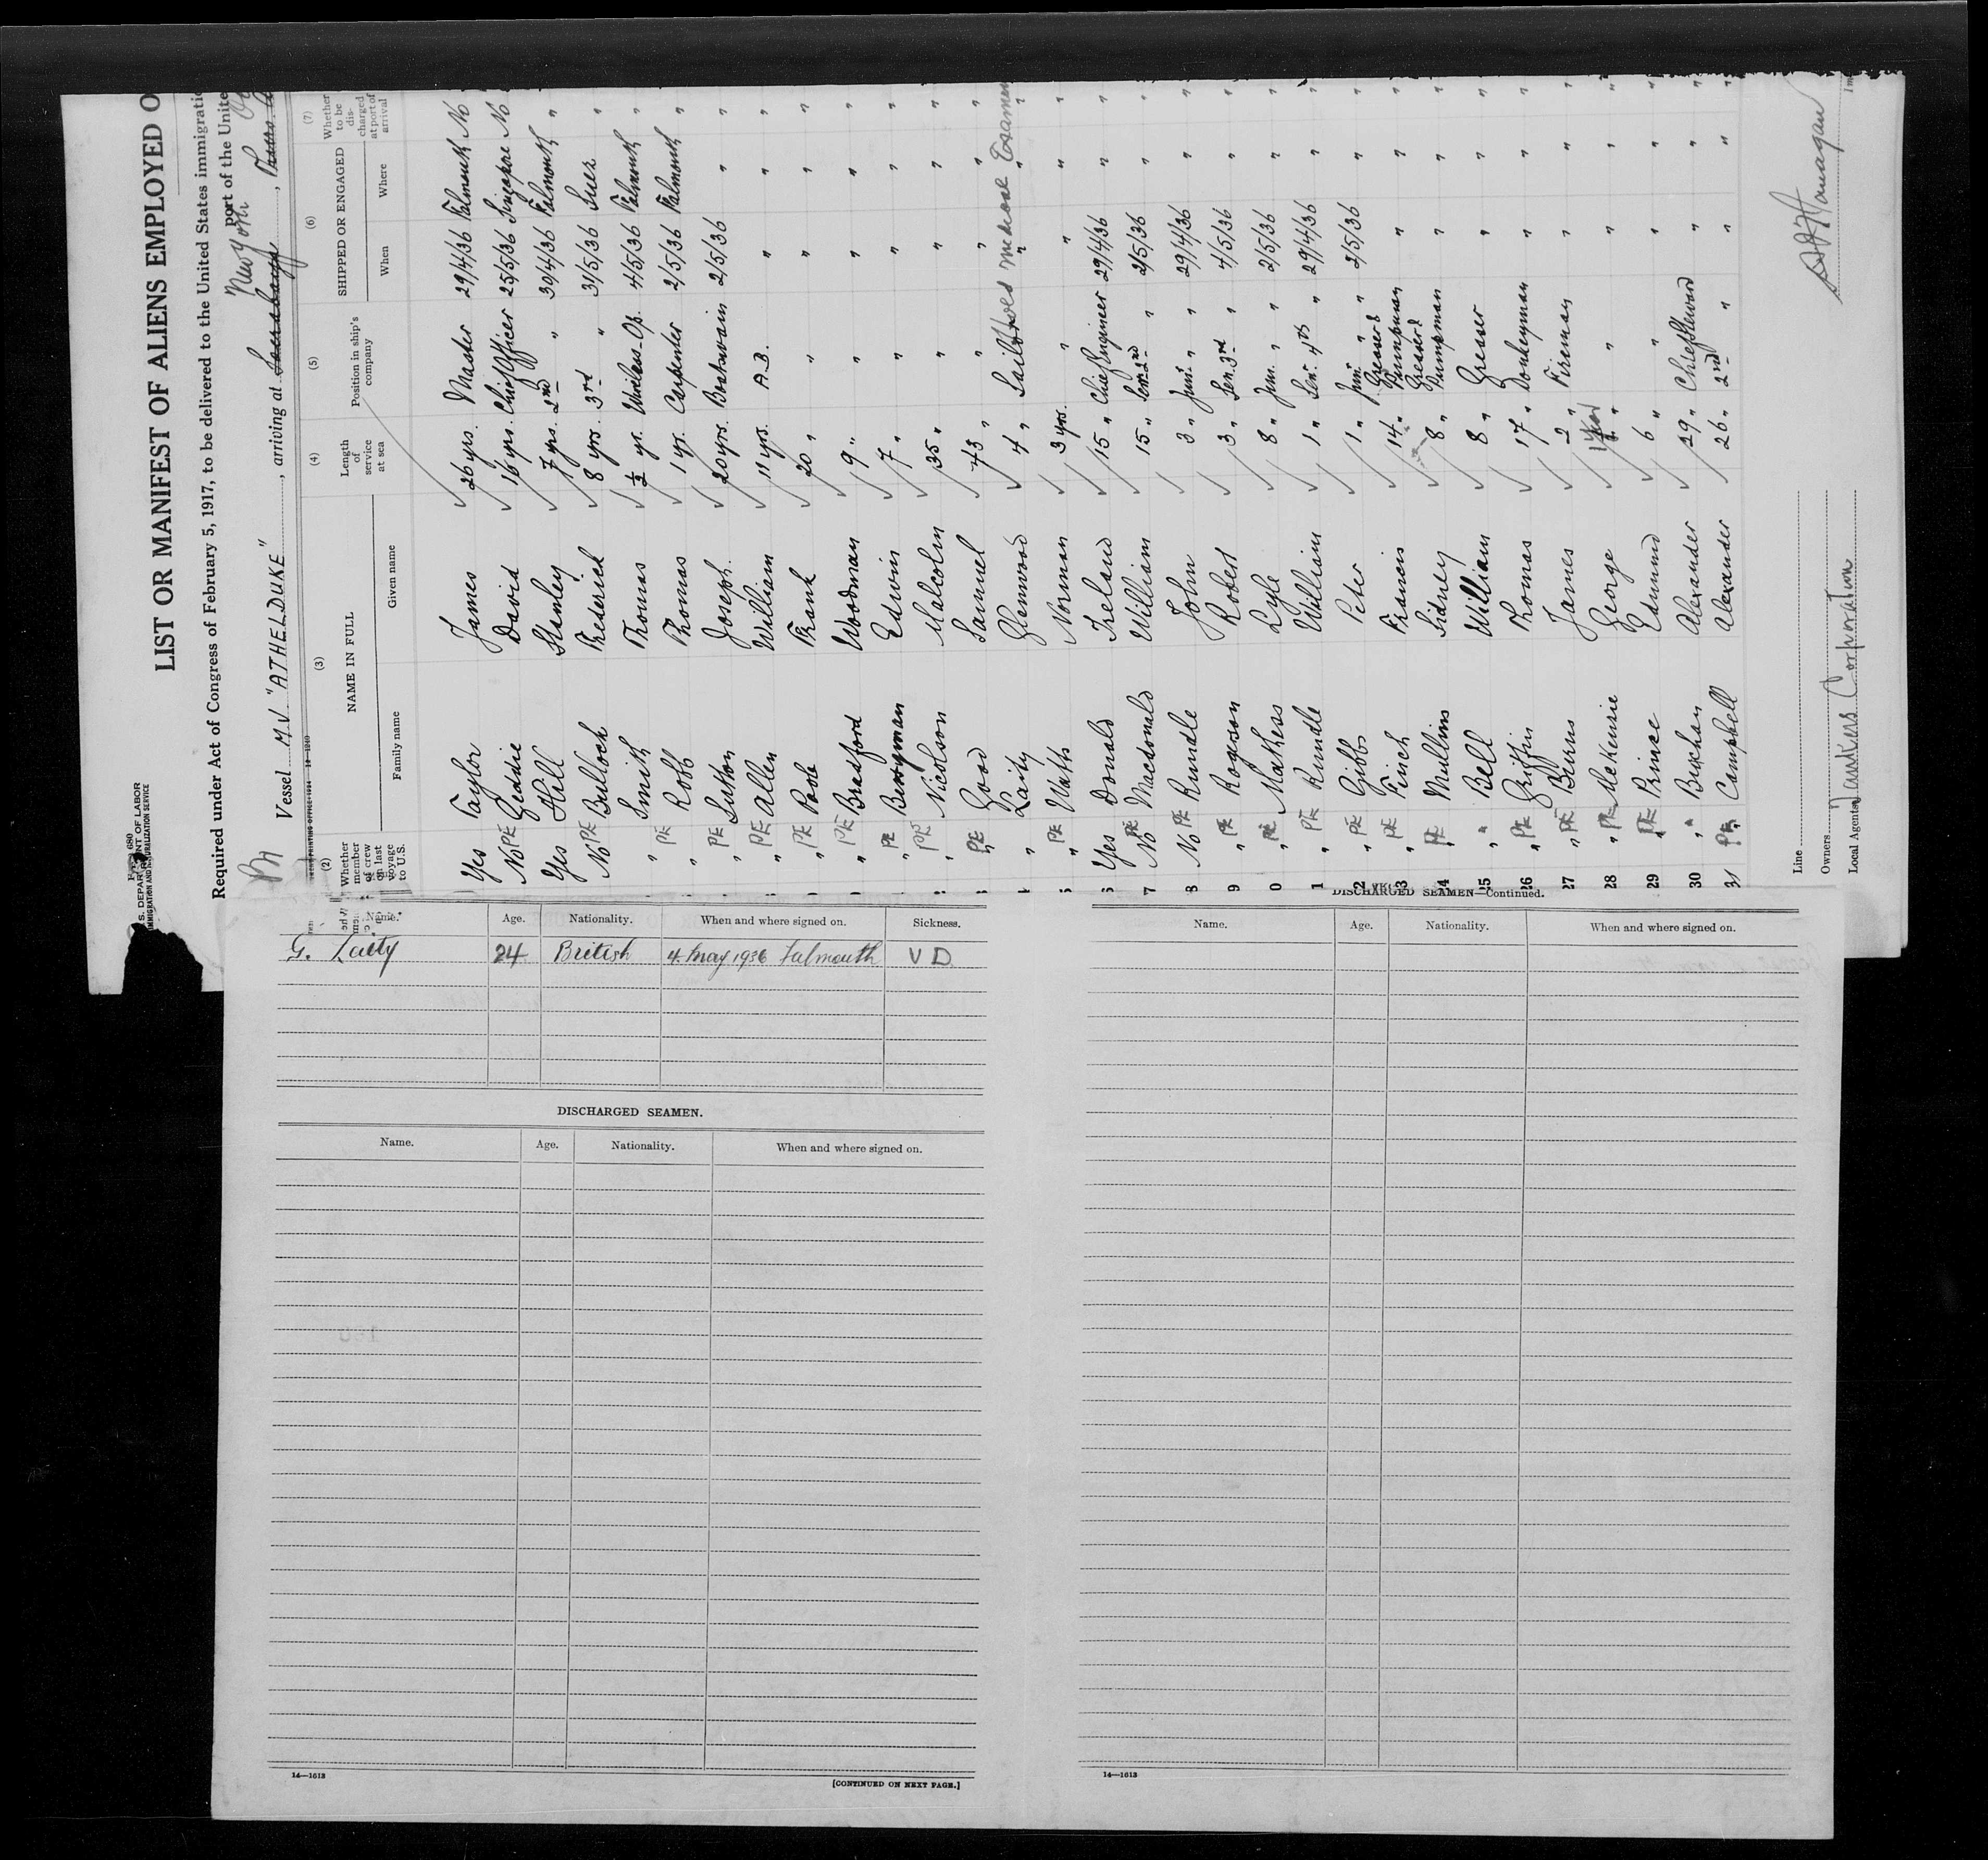 Form 680
U. S. DEPARTMENT OF LABOR
IMMIGRATION AND NATURALIZATION SERVICE
LIST OR MANIFEST OF ALIENS EMPLOYED O
Required under Act of Congress of February 5, 1917, to be delivered to the United States immigratio
port of the Unite
New York
Vessel M.V "ATHELDUKE", arriving at
(2) (3) (4) (5) (6) (7)
Whether member of crew on last voyage to U.S. NAME IN FULL Length of service at sea Position in ship's company SHIPPED OR ENGAGED Whether to be discharged at port of arrival
Family name Given name When Where
Yes Taylor James 26 yrs. Master 29/4/36 Falmouth No
No PE Geddie David 16 yrs. Chief Officer 25/5/36 Singapore No
Yes Hill Stanley 7 yrs. 2nd " 30/4/36 Falmouth "
No PE Bulloch Frederick 8 yrs. 3rd " 31/5/36 Suez "
" Smith Thomas 1/2 yr. Wireless-Op. 4/5/36 Falmouth "
" PE Robb Thomas 1 yr. Carpenter 2/5/36 Falmouth "
" PE Sutton Joseph 20 yrs. Boatswain 2/5/36 " "
" PE Allen William 11 yrs. A.B. " " "
" PE Poole Frank 20 " " " " "
" PE Bradford Woodman 9 " " " " "
" PE Berryman Edwin 7 " " " " "
" PE Nicolson Malcolm 35 " " " " "
" PE Good Samuel 43 " " " " "
" Laity Glenwood 4 " Sailor " " "
Medical Examin
" PE Watts Norman 3 yrs. " " " "
6 Yes Donald Ireland 15 " Chief Engineer 29/4/36 " "
7 No PE Macdonald William 15 " Sen. 2nd " 2/5/36 " "
8 No PE Rundle John 3 " Jun. " " 29/4/36 " "
9 " PE Rowson Robert 3 " Sen. 3rd " 4/5/36 " "
0 " PE Mathess Lyle 8 " Jun. " " 2/5/36 " "
1 " PE Rundle William 1 " Sen. 4th " 29/4/36 " "
22 " PE Gibbs Peter 1 " Jun. " " 2/5/36 " "
23 " PE Finch Francis 14 " Greaser & Pumpman " " "
24 " PE Mullins Sidney 8 " Greaser & Pumpman " " "
25 " " Bell William 8 " Greaser " " "
26 " PE Griffin Thomas 17 " Donkeyman " " "
27 " PE Burns James 2 " Fireman " " "
28 " PE McKenzie George 1 year " " " "
29 " PE Prince Edmund 6 " " " " "
30 " " Buchan Alexander 29 " Chief Steward " " "
31 PE " Campbell Alexander 26 " 2nd " " " "
Line
Owners
Local Agents Tankers Corporation
Name. Age. Nationality. When and where signed on. Sickness.
G. Laity 24 British 4 May 1936 Falmouth V D
DISCHARGED SEAMEN.
Name. Age. Nationality. When and where signed on.
14—1613
[CONTINUED ON NEXT PAGE.]
DISCHARGED SEAMEN—Continued.
Name. Age. Nationality. When and where signed on.
14—1613